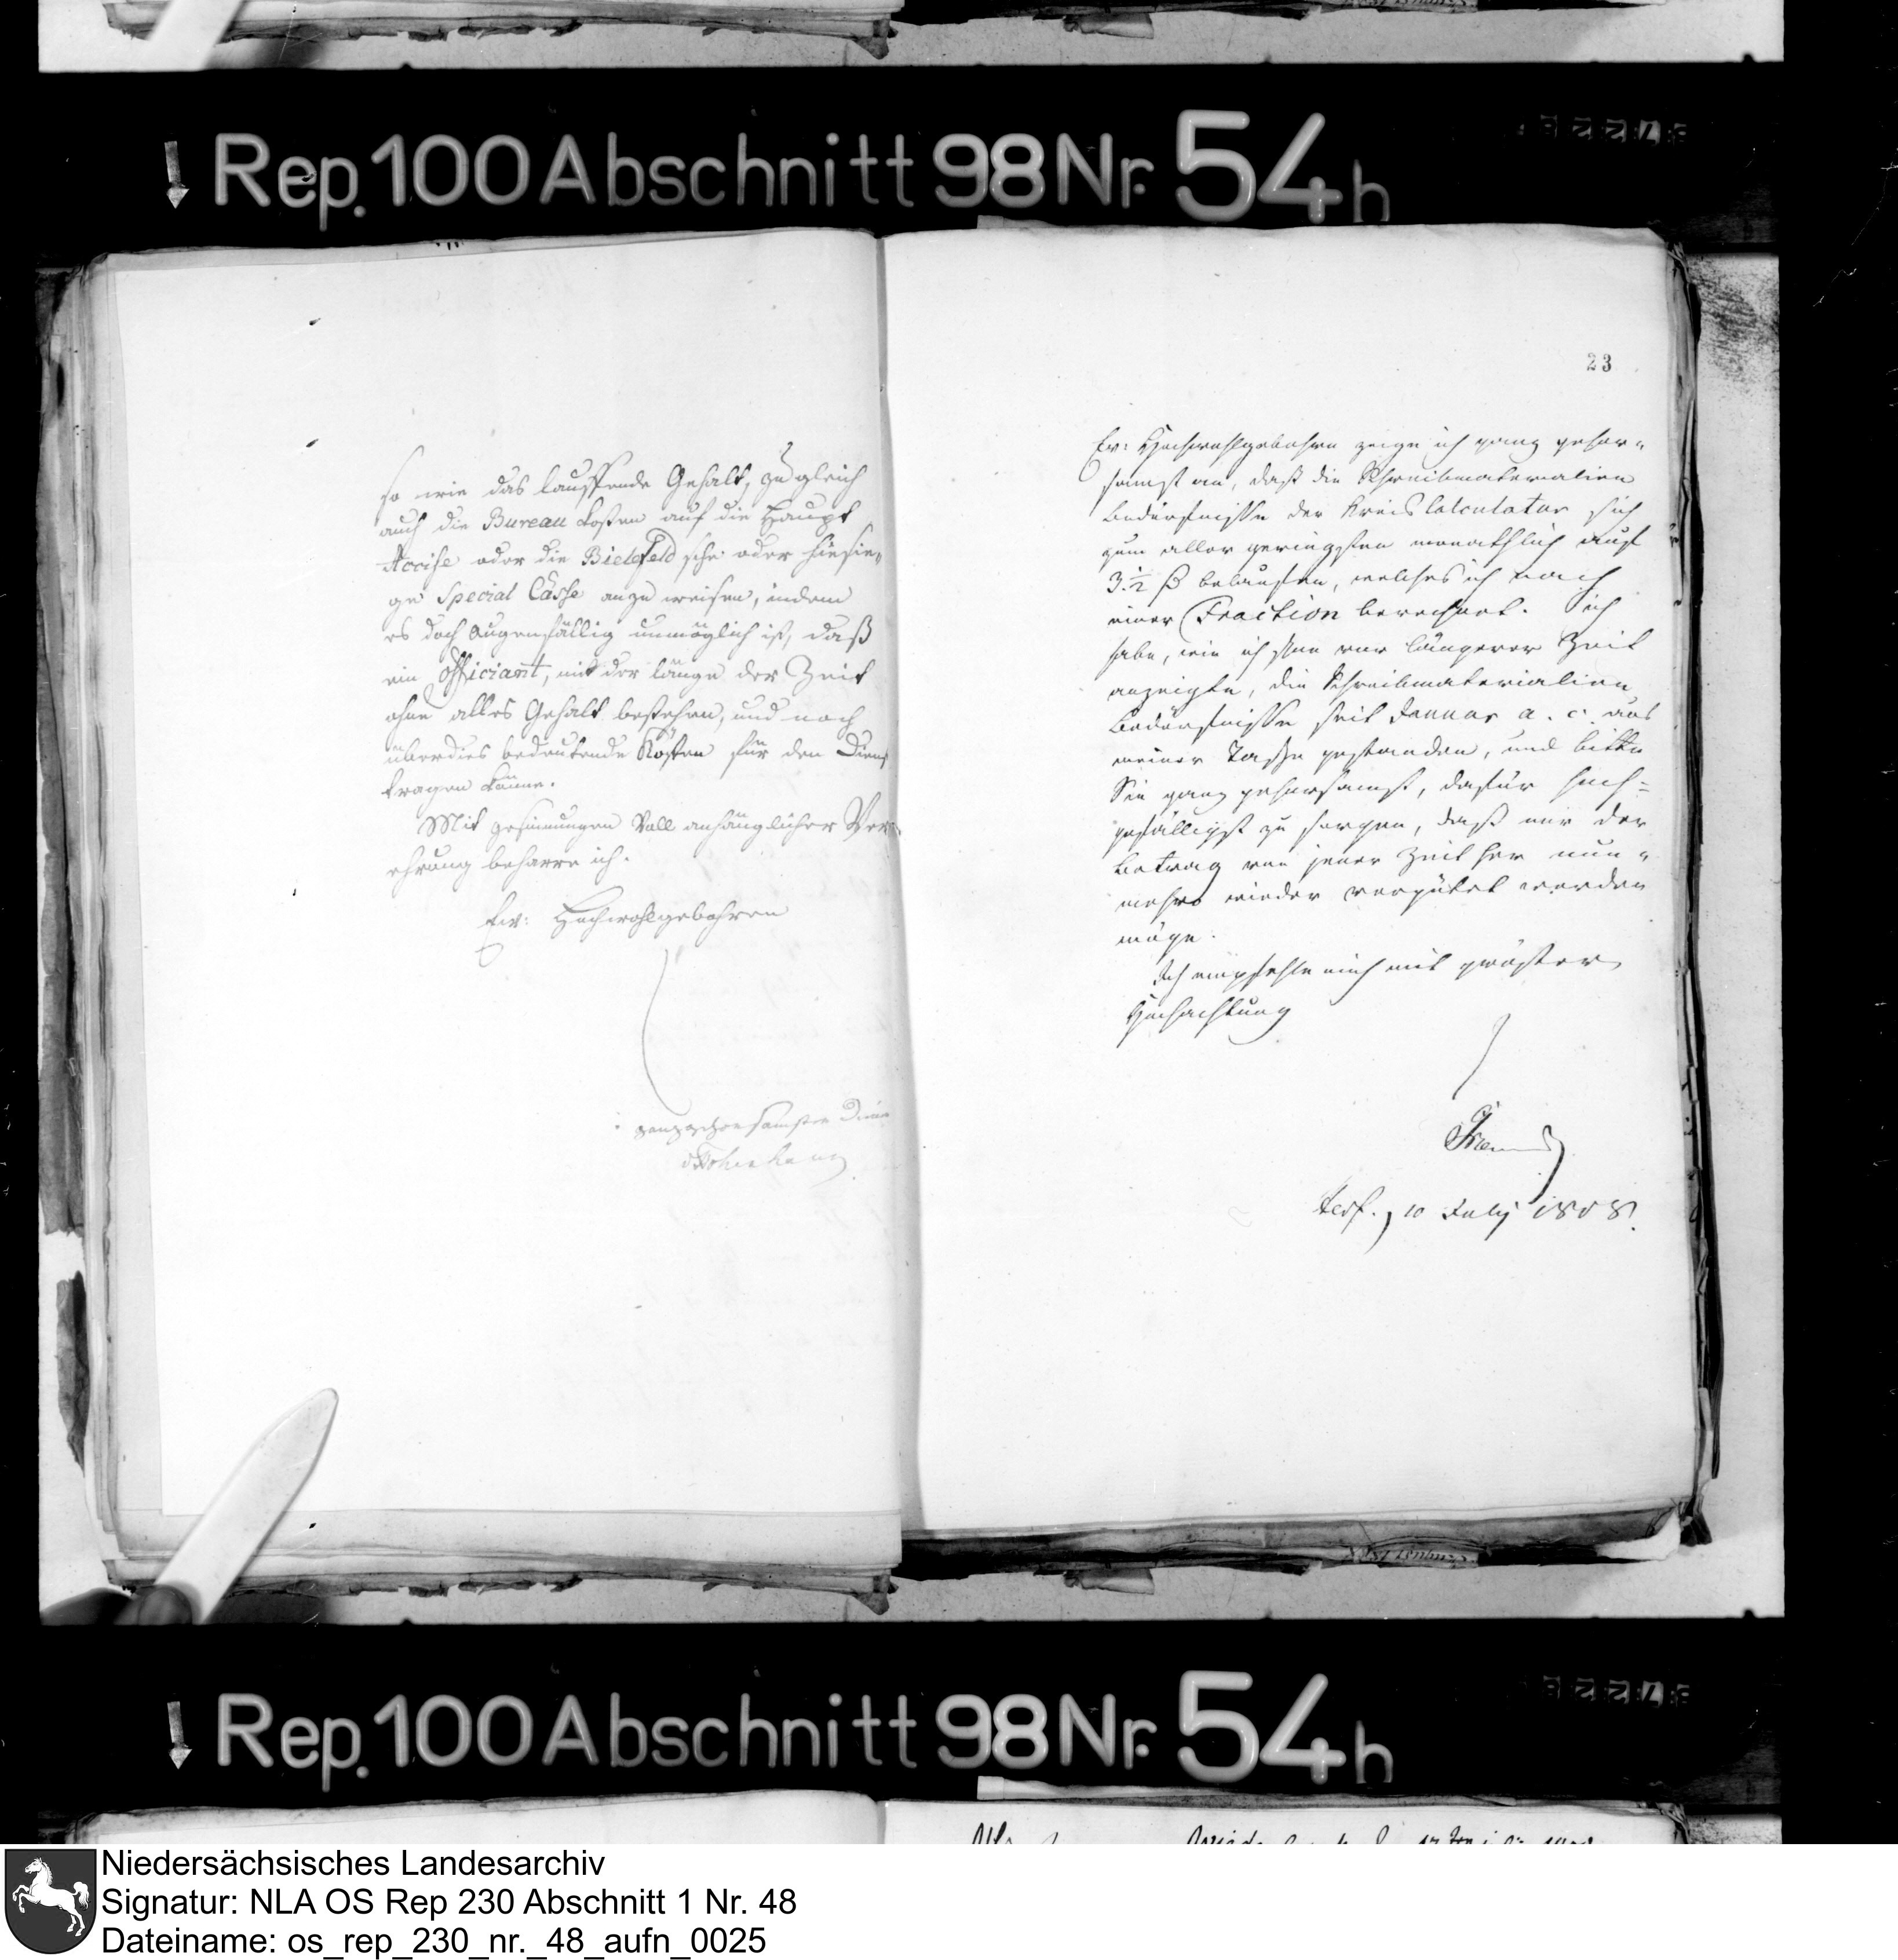 Rep. 100 Abschnitt 98 Nr. 54 h
so wie das lauffende Gehalt, zugleich
auch die Bureau Kosten auf die Haupt
Accise oder die Bielefeldsche oder hiesi„
ge Special Casse anzuweisen, indem
es doch augenfällig unmöglich ist, daß
ein Officiant, mit der länge der Zeit
ohne alles Gehalt bestehen, und noch
überdies bedeutende Kosten für den Dienst
tragen könne.
Mit gesinnungen Voll anhänglicher Ver„
ehrung beharre ich.
Ew: Hochwohlgebohren
ganz gehorsamster Diener
23
Ew: Hochwohlgebohren zeige ich ganz gehor„
samst an, daß die Schreibmaterialien
Bedürfnisse der Kreis Calculatur sich
zum aller geringsten monathlich auf
3 1/2 belaufen, welches ich nach
einer Fraction berechnet. Ich
habe, wie ich schon vor längerer Zeit
anzeigte, die Schreibmaterialien
Bedürfnisse seit Januar a. c. aus
meiner Tasche gestanden, und bitte
Sie ganz gehorsamst, dafür hoch=
gefälligst zu sorgen, daß mir der
Betrag von jener Zeit her nun„
mehro wieder vergütet werden
möge.
Ich empfehle mich mit größter
Hochachtung
Herf. 10 July 1808.
Rep. 100 Abschnitt 98 Nr. 54 h
Niedersächsisches Landesarchiv
Signatur: NLA OS Rep 230 Abschnitt 1 Nr. 48
Dateiname: os_rep_230_nr._48_aufn_0025